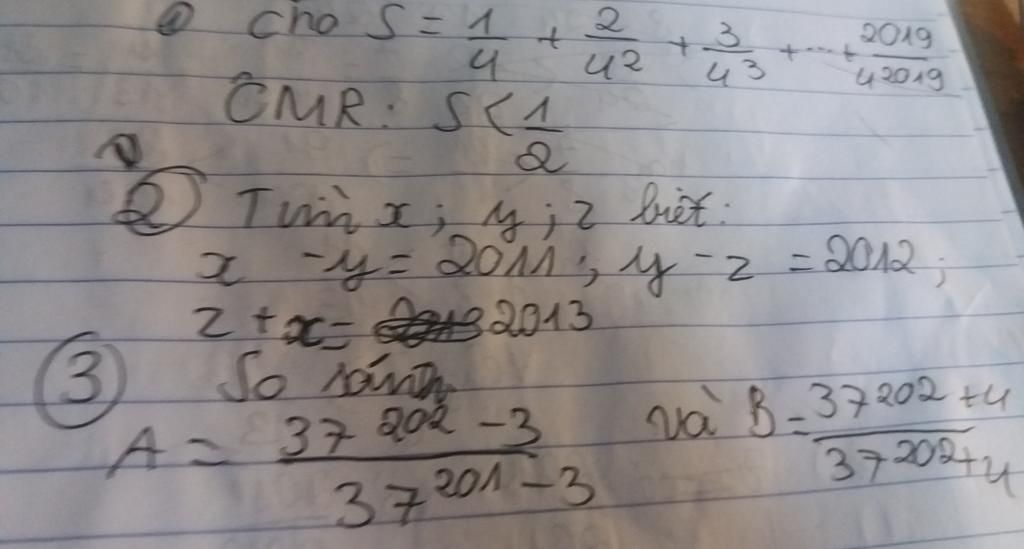 ① Cho S = 1/4 + 2/4² + 3/4³ + ... + 2019/4²⁰¹⁹
CMR: S < 1/2
② Tìm x; y; z biết:
x - y = 2011; y - z = 2012;
z + x = 2013
③ So sánh
A = (37²⁰² - 3)/(37²⁰¹ - 3) và B = (37²⁰² + 4)/(37²⁰² + 4)